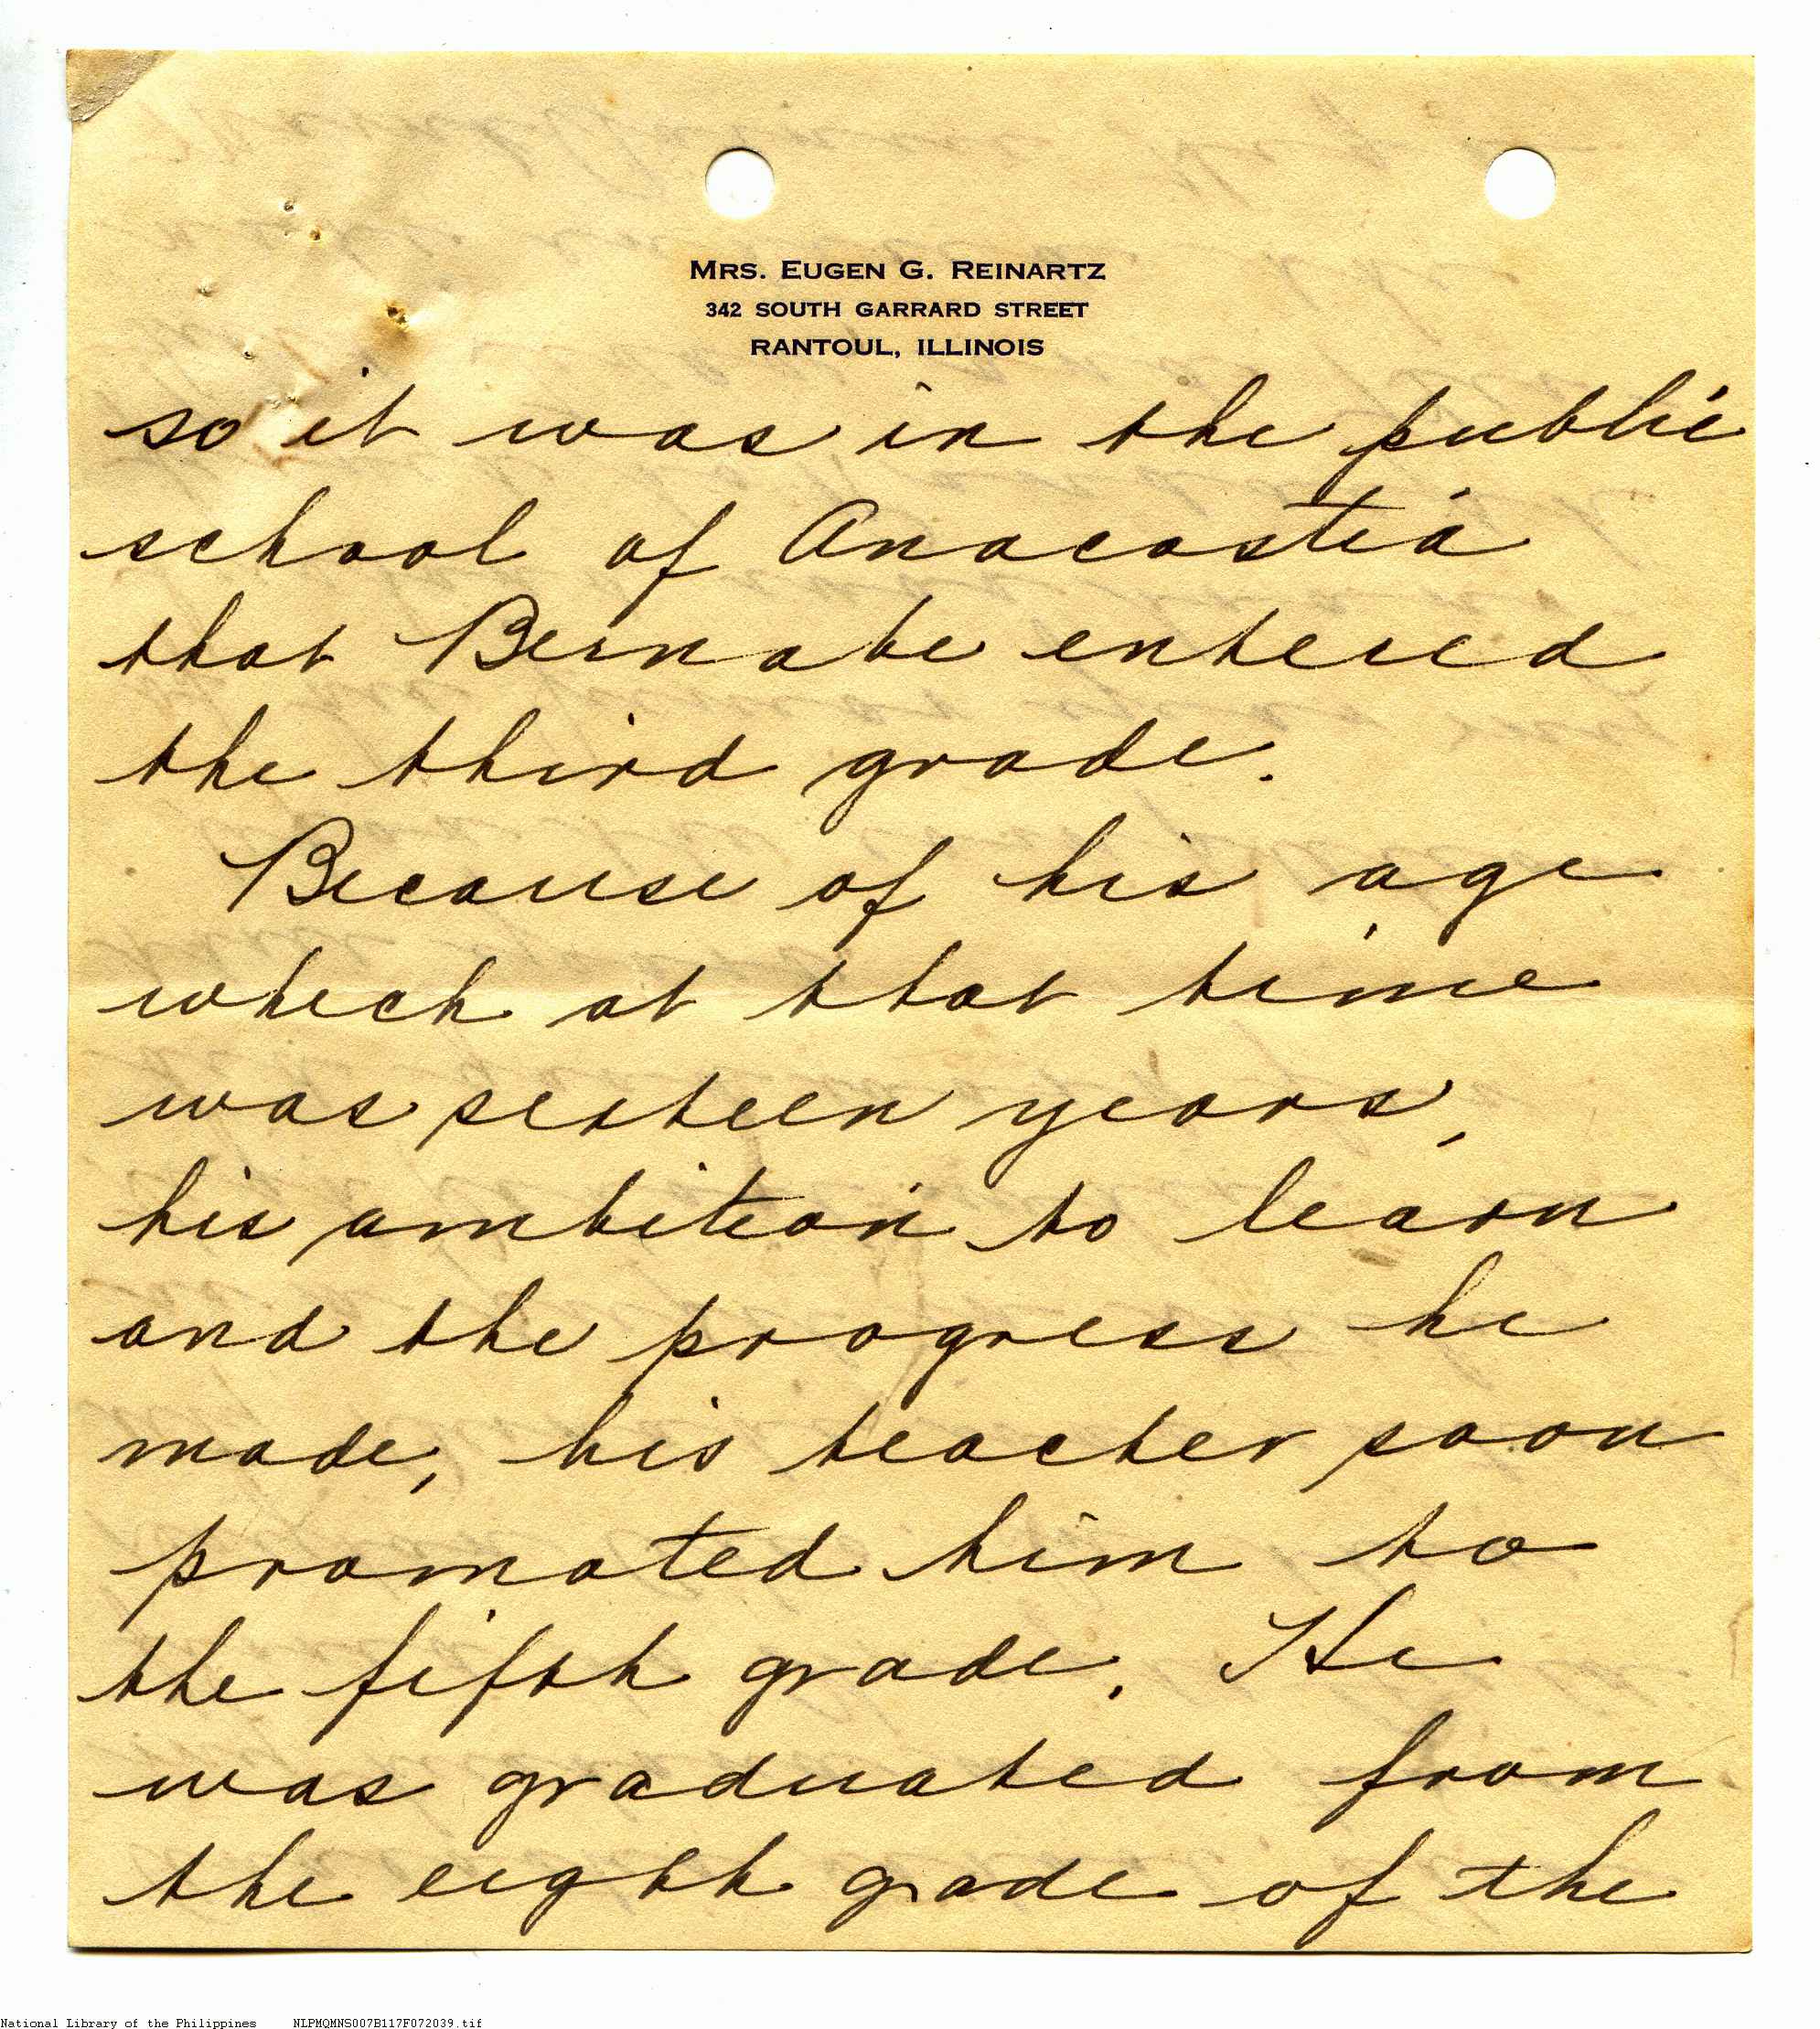 MRS. EUGEN G. REINARTZ
342 SOUTH GARRARD STREET
RANTOUL, ILLINOIS
so it was in the public
school of Anacostia
that Bernabe entered
the third grade.
Because of his age
which at that time
was sixteen years,
his ambition to learn
and the progress he
made, his teacher soon
promoted him to
the fifth grade. He
was graduated from
the eighth grade of the
National Library of the Philippines NLPMQMNS007B117F072039.tif